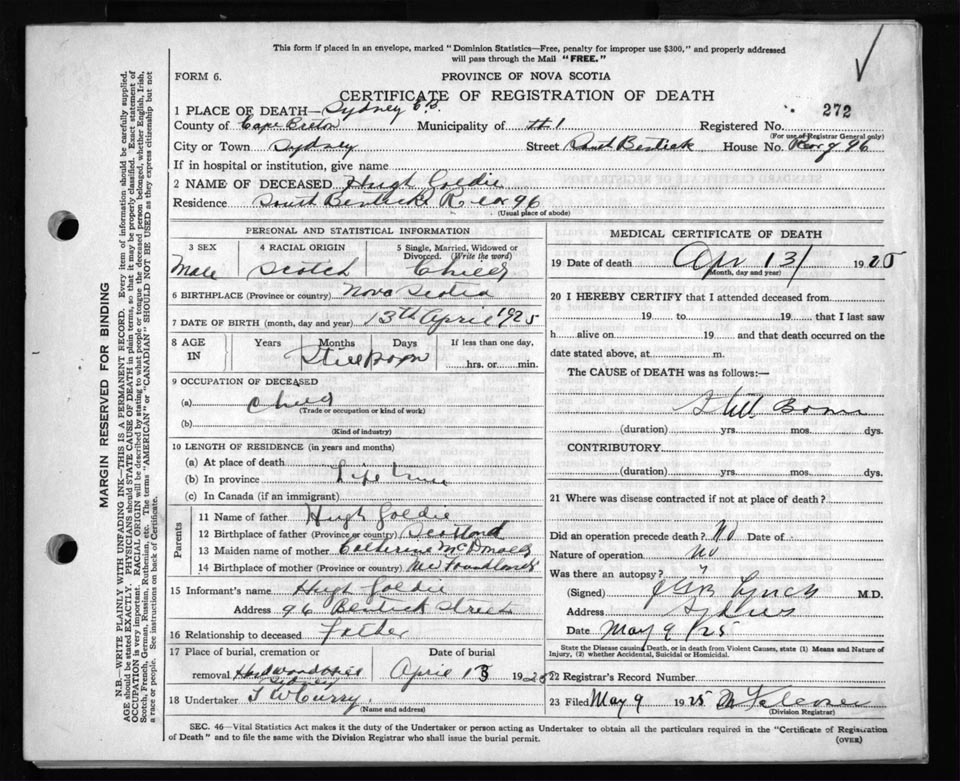 This form if placed in an envelope, marked "Dominion Statistics—Free, penalty for improper use $300," and properly addressed
will pass through the Mail "FREE."
FORM 6.
PROVINCE OF NOVA SCOTIA
CERTIFICATE OF REGISTRATION OF DEATH
1 PLACE OF DEATH—Sydney C.B.
272
County of Cape Breton Municipality of Registered No.
(For use of Registrar General only)
City or Town Sydney Street South Bentick House No. Rear 96
If in hospital or institution, give name
2 NAME OF DECEASED Hugh Goldie
Residence South Bentick Rear 96
(Usual place of abode)
PERSONAL AND STATISTICAL INFORMATION
3 SEX 4 RACIAL ORIGIN 5 Single, Married, Widowed or
Divorced. (Write the word)
Male Scotch Child
6 BIRTHPLACE (Province or country) Nova Scotia
7 DATE OF BIRTH (month, day and year) 13th April 1925
8 AGE IN Years Months Days If less than one day,
Stillborn hrs. or min.
9 OCCUPATION OF DECEASED
(a) Child
(Trade or occupation or kind of work)
(b)
(Kind of industry)
10 LENGTH OF RESIDENCE (in years and months)
(a) At place of death
(b) In province Life time
(c) In Canada (if an immigrant)
Parents
11 Name of father Hugh Goldie
12 Birthplace of father (Province or country) Scotland
13 Maiden name of mother Catherine McDonald
14 Birthplace of mother (Province or country) Newfoundland
15 Informant's name Hugh Goldie
Address 96 Bentick Street
16 Relationship to deceased Father
17 Place of burial, cremation or Date of burial
removal Hardwood Hill Sydney April 13 1925
18 Undertaker T W Curry
(Name and address)
MEDICAL CERTIFICATE OF DEATH
19 Date of death Apr 13/ 1925
(Month, day and year)
20 I HEREBY CERTIFY that I attended deceased from
19 to 19 that I last saw
h alive on 19 and that death occurred on the
date stated above, at m.
The CAUSE OF DEATH was as follows:—
Still Born
(duration) yrs. mos. dys.
CONTRIBUTORY
(duration) yrs. mos. dys.
21 Where was disease contracted if not at place of death?
Did an operation precede death? No Date of
Nature of operation No
Was there an autopsy?
(Signed) Lynch M.D.
Address Sydney
Date May 9/25
State the Disease causing Death, or in death from Violent Causes, state (1) Means and Nature of
Injury, (2) whether Accidental, Suicidal or Homicidal.
22 Registrar's Record Number
23 Filed May 9 1925
(Division Registrar)
SEC. 46—Vital Statistics Act makes it the duty of the Undertaker or person acting as Undertaker to obtain all the particulars required in the "Certificate of Registration
of Death" and to file the same with the Division Registrar who shall issue the burial permit.
(OVER)
MARGIN RESERVED FOR BINDING
N.B.—WRITE PLAINLY WITH UNFADING INK—THIS IS A PERMANENT RECORD. Every item of information should be carefully supplied.
AGE should be stated EXACTLY. PHYSICIANS should STATE CAUSE OF DEATH in plain terms, so that it may be properly classified. Exact statement of
OCCUPATION is very important. RACIAL ORIGIN will be described by stating to what people or tongue the deceased person belonged, whether English, Irish,
Scotch, French, German, Russian, Ruthenian, etc. The terms "AMERICAN" or "CANADIAN" SHOULD NOT BE USED as they express citizenship but not
a race or people. See instructions on back of Certificate.